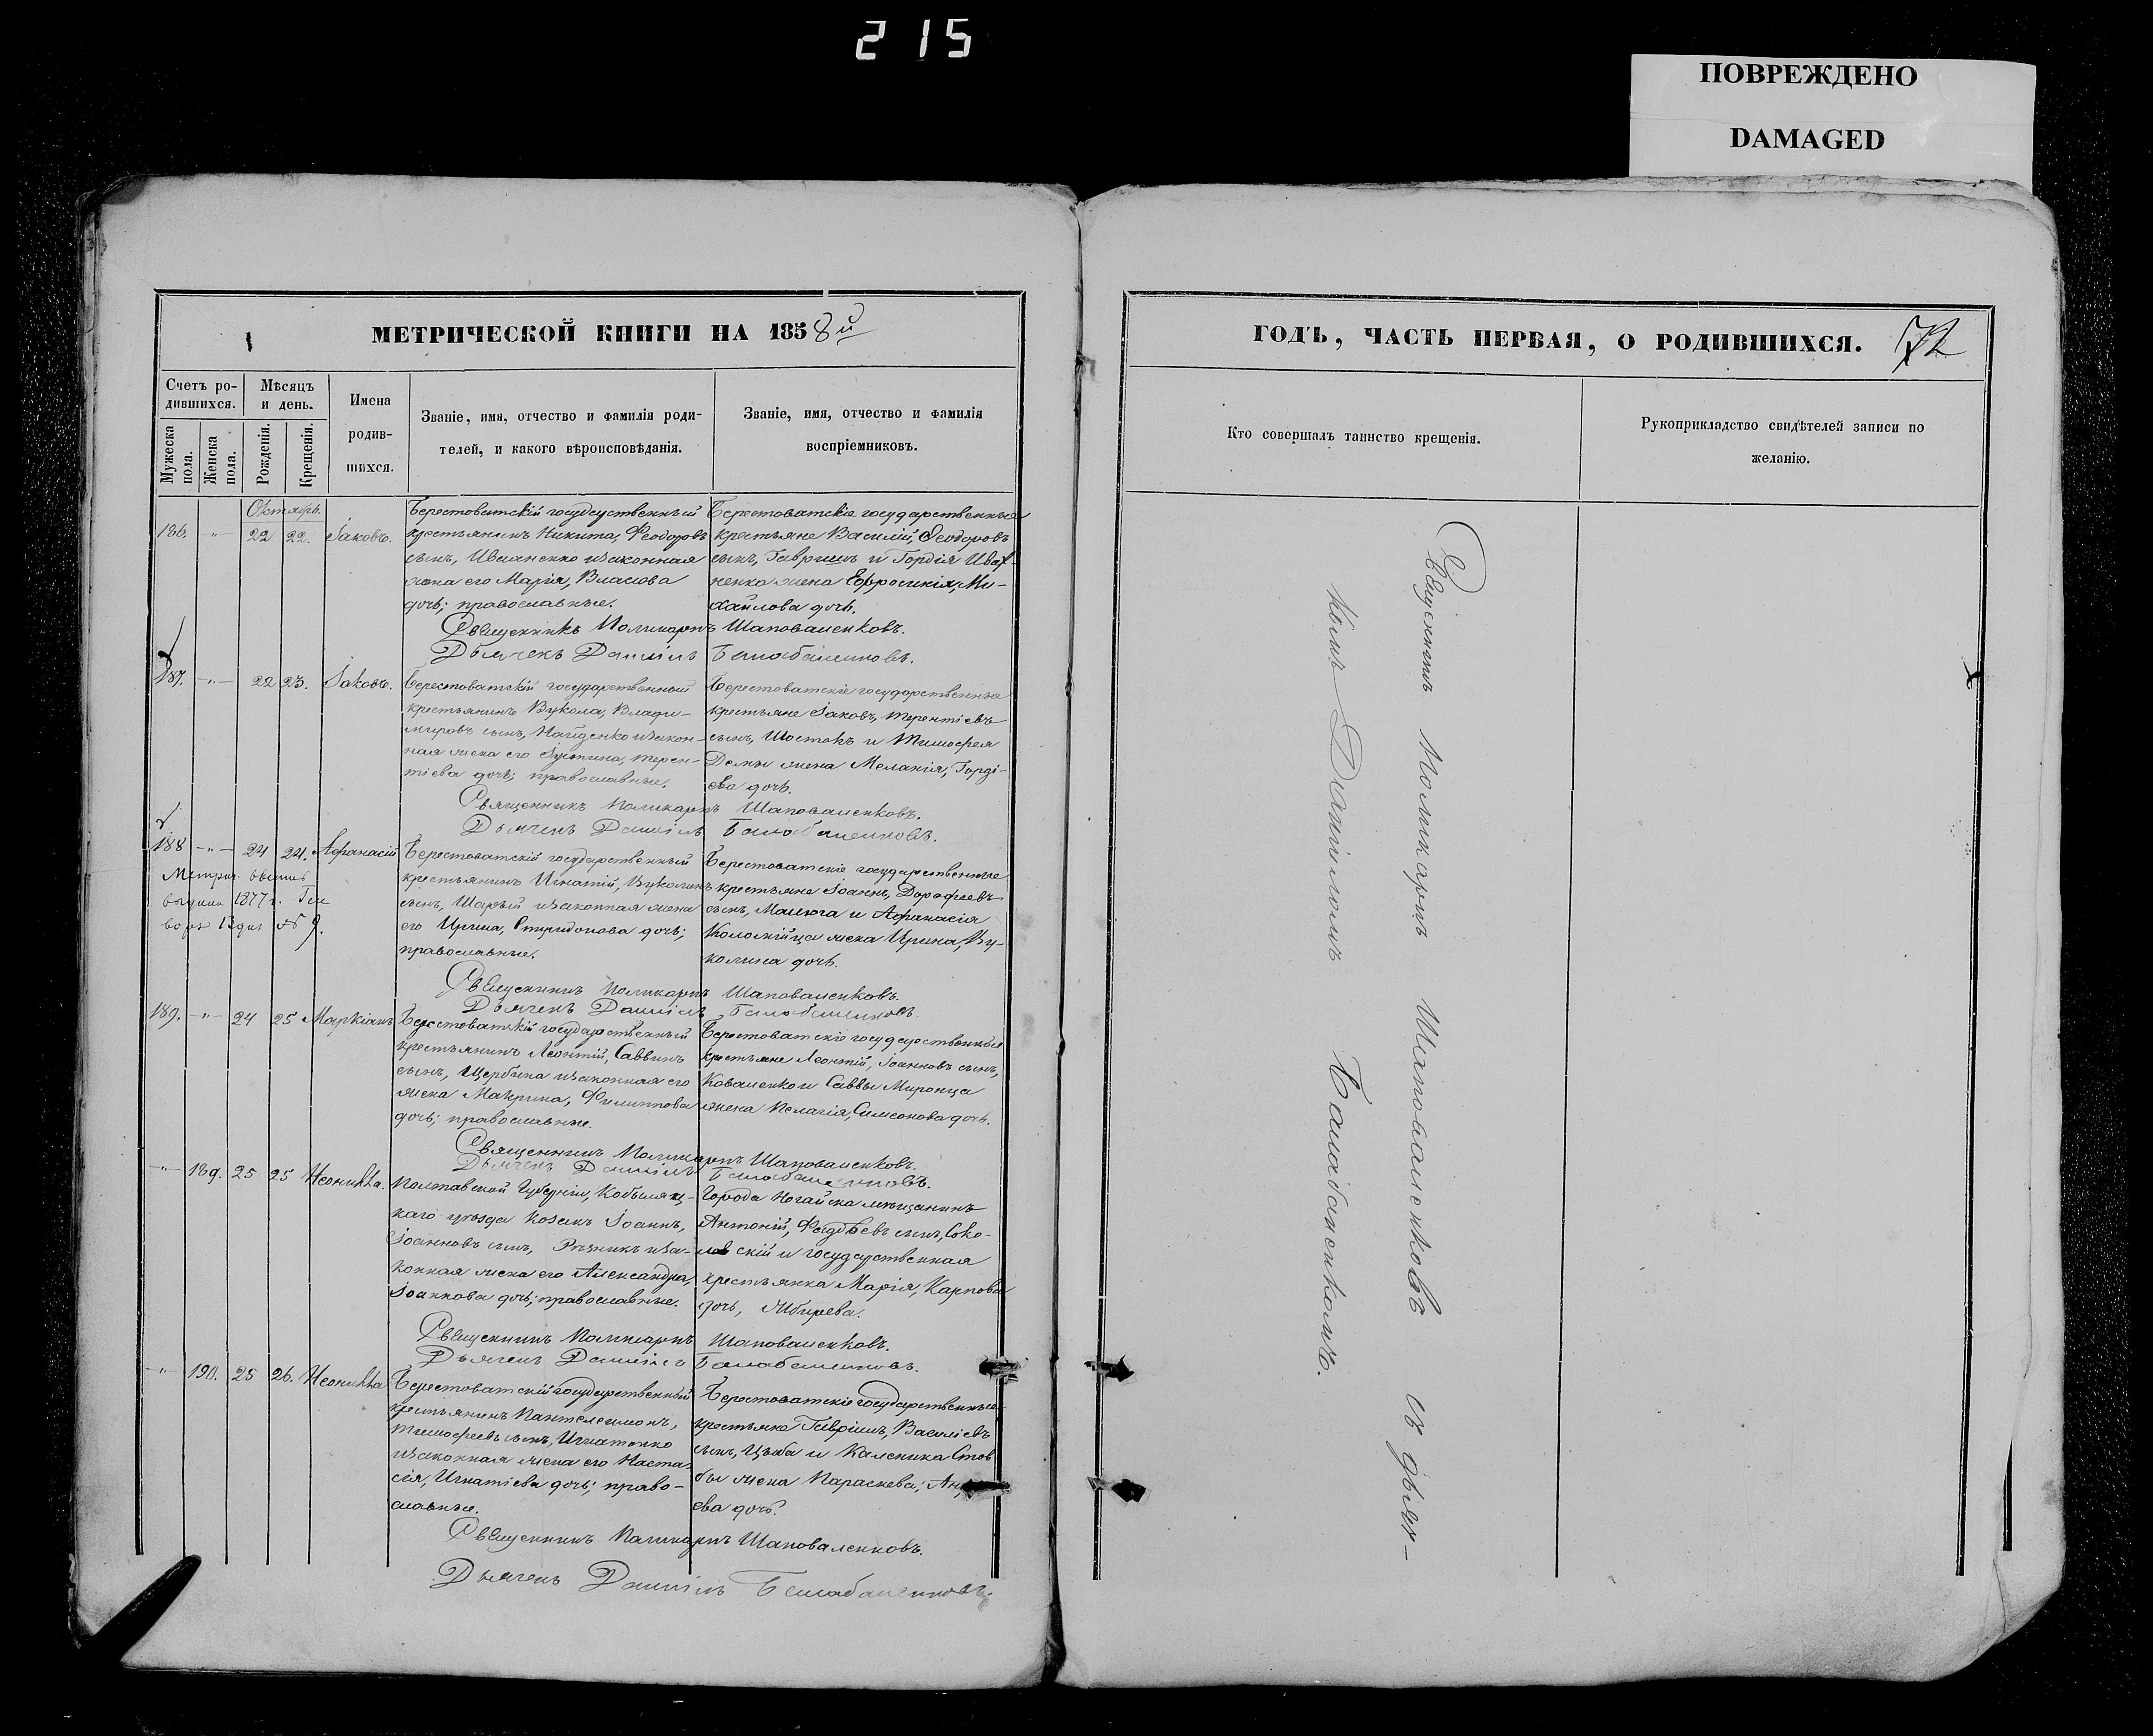 215
ПОВРЕЖДЕНО
DAMAGED
МЕТРИЧЕСКОЙ КНИГИ НА 1858й
Счетъ ро-
дившихся.
Мѣсяцъ
и день.
Имена
родив-
шихся.
Званіе, имя, отчество и фамилія роди-
телей, и какого вѣроисповѣданія.
Званіе, имя, отчество и фамилія
воспріемниковъ.
Мужеска
пола.
Женска
пола.
Рожденія.
Крещенія.
Октябрь.
186. -"- 22 22. Іаковъ.
Берестоватскій государственный
крестьянинъ Никита, Феодоровъ
сынъ, и законная
жена его Марія, Власова
дочь; православные.
Берестоватскіе государственные
крестьяне Василій, Феодоровъ
сынъ, Гавришъ и Гордія Ива-
ненка жена Евфросинія, Ми-
хаилова дочь.
Священникъ Поликарпъ Шаповаленковъ.
Дьячекъ Даніилъ Балабаненковъ.
187. -"- 22 23. Іаковъ.
Берестоватскій государственный
крестьянинъ Вукола, Влади-
міровъ сынъ, Найденко и закон-
ная жена его Іустина, Терен-
тіева дочь; православные.
Берестоватскіе государственные
крестьяне Іаковъ, Терентіевъ
сынъ, Шостакъ и Тимофея
Демы жена Меланія, Горді-
ева дочь.
Священникъ Поликарпъ Шаповаленковъ.
Дьячекъ Даніилъ Балабаненковъ.
188 -"- 24 24. Афанасій
Метрич. выпись
выдана 1877 г. Ген
варя 13 дня №9.
Берестоватскій государственный
крестьянинъ Игнатій, Вуколинъ
сынъ, Шарый и законная жена
его Ирина, Спиридонова дочь;
православные.
Берестоватскіе государственные
крестьяне Іоаннъ, Дорофеевъ
сынъ, Малюга и Афанасія
Коломійца жена Ирина, Ву-
колина дочь.
Священникъ Поликарпъ Шаповаленковъ.
Дьячекъ Даніилъ Балабаненковъ.
189. -"- 24 25 Маркіанъ
Берестоватскій государственный
крестьянинъ Леонтій, Саввинъ
сынъ, Щербина и законная его
жена Макрина, Филиппова
дочь; православные.
Берестоватскіе государственные
крестьяне Леонтій, Іоанновъ сынъ,
Коваленко и Саввы Миронца
жена Пелагія, Симеонова дочь.
Священникъ Поликарпъ Шаповаленковъ.
Дьячекъ Даніилъ Балабаненковъ.
-"- 189. 25 25 Неонилла.
Полтавской Губерніи, Кобыляц-
каго уѣзда козакъ Іоаннъ,
Іоанновъ сынъ, Рѣзникъ и за-
конная жена его Александра,
Іоаннова дочь; православные.
Города Ногайска мѣщанинъ
Антоній, Фаддѣевъ сынъ, Соко-
ловскій и государственная
крестьянка Марія, Карпова
дочь,
Священникъ Поликарпъ Шаповаленковъ.
Дьячекъ Даніилъ Балабаненковъ.
-"- 190. 25 26. Неонилла
Берестоватскій государственный
крестьянинъ Пантелеимонъ,
Тимофеевъ сынъ, Игнатенко
и законная жена его Наста-
сія, Игнатіева дочь; право-
славные.
Берестоватскіе государственные
крестьяне Гавріилъ, Василіевъ
сынъ, Цыба и Каленика Стов
бы жена Параскева,
ева дочь.
Священникъ Поликарпъ Шаповаленковъ.
Дьячекъ Даніилъ Балабаненковъ.
ГОДЪ, ЧАСТЬ ПЕРВАЯ, О РОДИВШИХСЯ. 72
Кто совершалъ таинство крещенія.
Рукоприкладство свидѣтелей записи по
желанію.
Священникъ Поликарпъ Шаповаленковъ съ дьяч-
комъ Даніиломъ Балабаненкомъ.